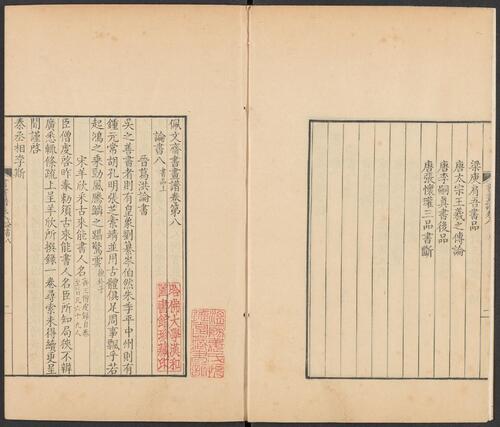 梁庾肩吾書品
唐太宗王羲之傳論
唐李嗣真書後品
唐張懷瓘三品書斷
佩文齋書畫譜卷第八
論書八 書品上
晉葛洪論書
吳之善書者則有皇象劉纂岑伯然朱季平中州則有
鍾元常胡孔明張芝索靖並用古體俱足周事飄乎若
起鴻之乘勁風騰鱗之躡驚雲 抱朴子
宋羊欣采古來能書人名
臣僧虔啓昨奉勅須古來能書人名臣所知局狹不辨
廣悉輒條疏上呈羊欣所撰録一卷尋索未得續更呈
聞謹啓
秦丞相李斯
哈佛大學漢和
圖書館珍藏印